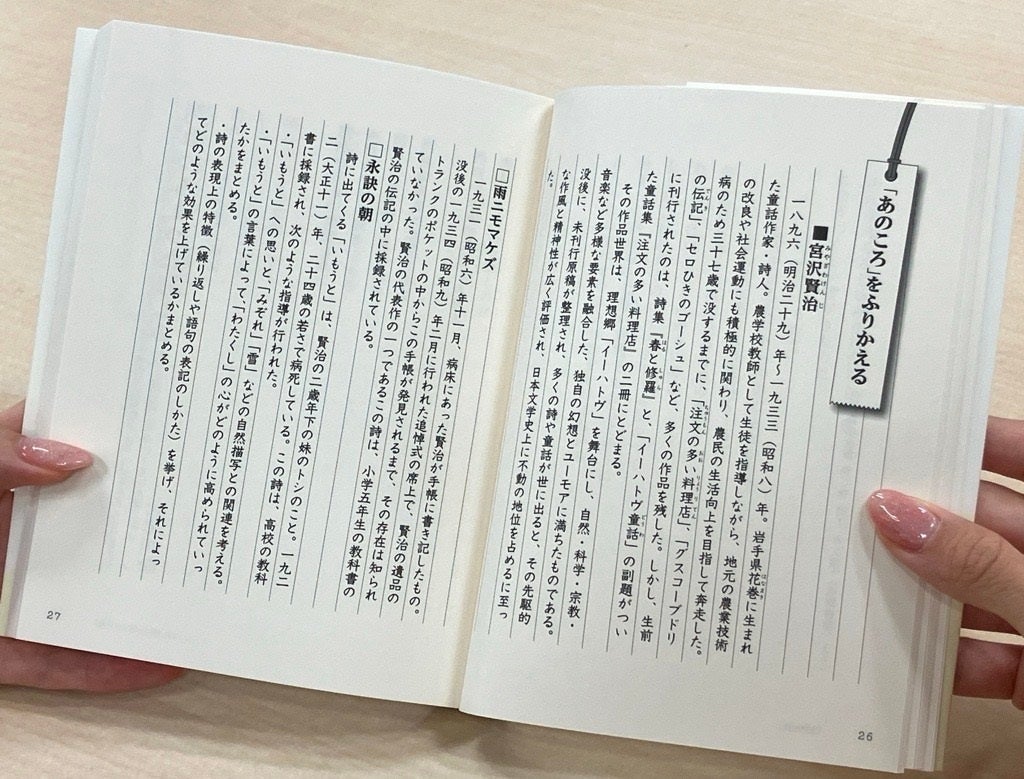 「あのころ」をふりかえる
■宮沢賢治
みやざわけんじ
一八九六（明治二十九）年～一九三三（昭和八）年。岩手県花巻に生まれ
はなまき
た童話作家・詩人。農学校教師として生徒を指導しながら、地元の農業技術
の改良や社会運動にも積極的に関わり、農民の生活向上を目指して奔走した。
病のため三十七歳で没するまでに、「注文の多い料理店」、「グスコーブドリ
ちゅうもん おお りょうりてん
の伝記」、「セロひきのゴーシュ」など、多くの作品を残した。しかし、生前
でんき
に刊行されたのは、詩集『春と修羅』と、「イーハトヴ童話」の副題がつい
はる しゅら どうわ
た童話集『注文の多い料理店』の二冊にとどまる。
その作品世界は、理想郷「イーハトヴ」を舞台にし、自然・科学・宗教・
音楽など多様な要素を融合した、独自の幻想とユーモアに満ちたものである。
没後に、未刊行原稿が整理され、多くの詩や童話が世に出ると、その先駆的
な作風と精神性が広く評価され、日本文学史上に不動の地位を占めるに至っ
た。
26
□雨ニモマケズ
一九三一（昭和六）年十一月、病床にあった賢治が手帳に書き記したもの。
没後の一九三四（昭和九）年二月に行われた追悼式の席上で、賢治の遺品の
トランクのポケットの中からこの手帳が発見されるまで、その存在は知られ
ていなかった。賢治の代表作の一つであるこの詩は、小学五年生の教科書の
賢治の伝記の中に採録されている。
□永訣の朝
詩に出てくる「いもうと」は、賢治の二歳年下の妹のトシのこと。一九二
二（大正十一）年、二十四歳の若さで病死している。この詩は、高校の教科
書に採録され、次のような指導が行われた。
・「いもうと」への思いと、「みぞれ」「雪」などの自然描写との関連を考える。
・「いもうと」の言葉によって、「わたくし」の心がどのように高められていっ
たかをまとめる。
・詩の表現上の特徴（繰り返しや語句の表記のしかた）を挙げ、それによっ
てどのような効果を上げているかまとめる。
27